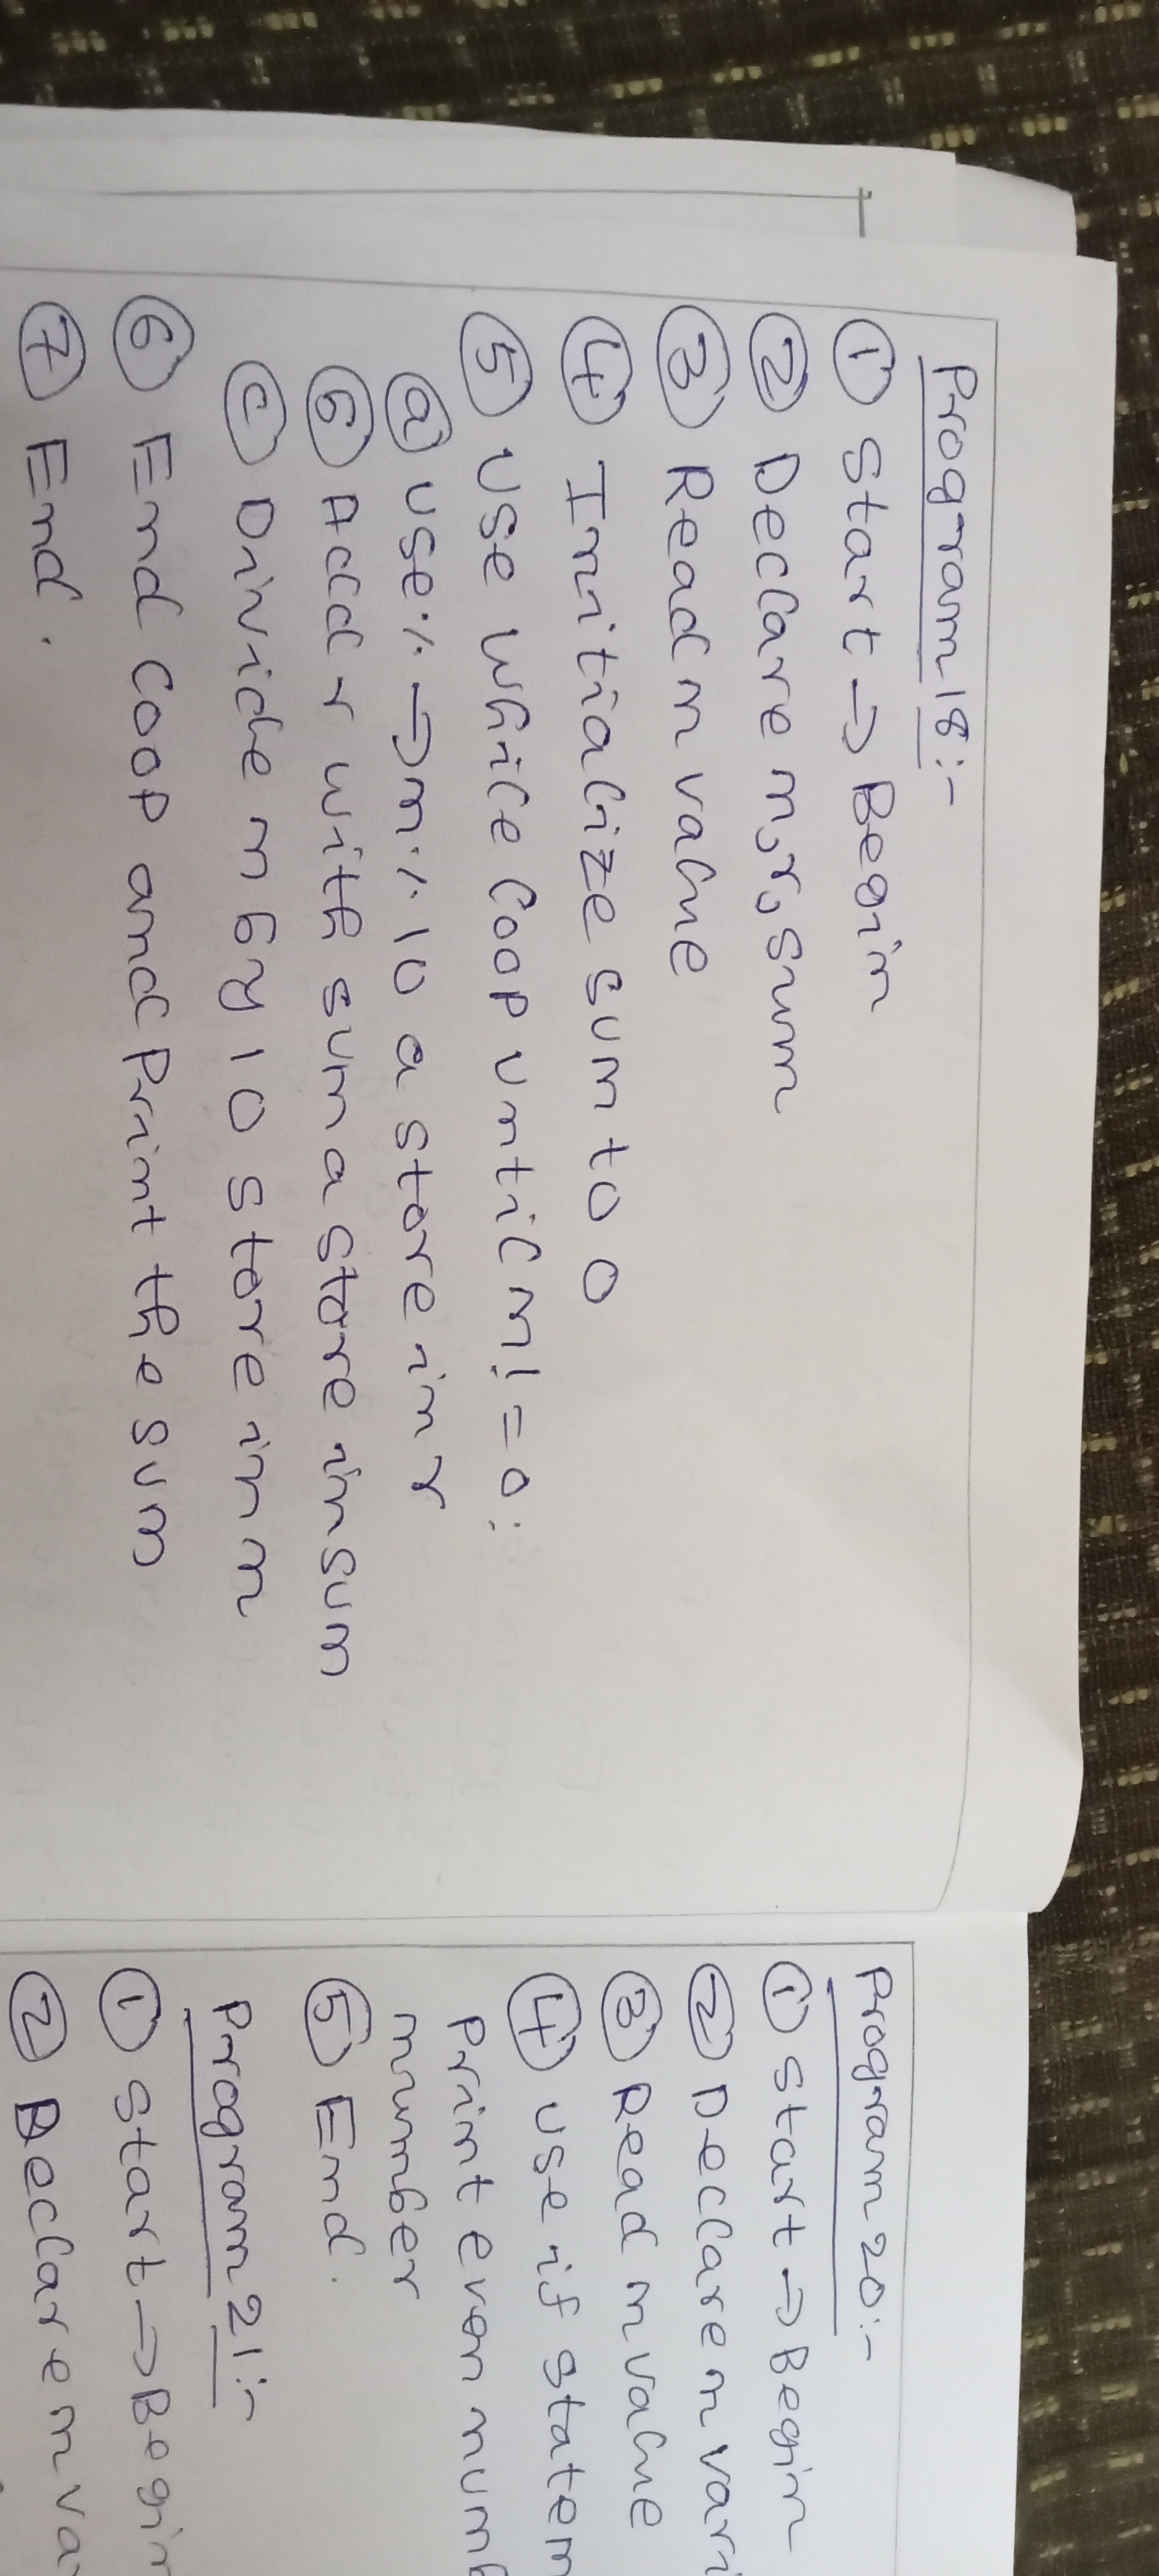 Program 18:-
① Start → Begin
② Declare n, r, sum
③ Read n value
④ Initialize sum to 0
⑤ Use while loop until n! = 0:
ⓐ Use % → n % 10 a store in r
ⓑ Add r with sum a store in sum
ⓒ Divide n by 10 store in n
⑥ End loop and print the sum
⑦ End.
Program 20:-
① Start → Begin
② Declare n vari
③ Read n value
④ Use if statem
print even numb
number
⑤ End.
Program 21:-
① Start → Begin
② Declare n va